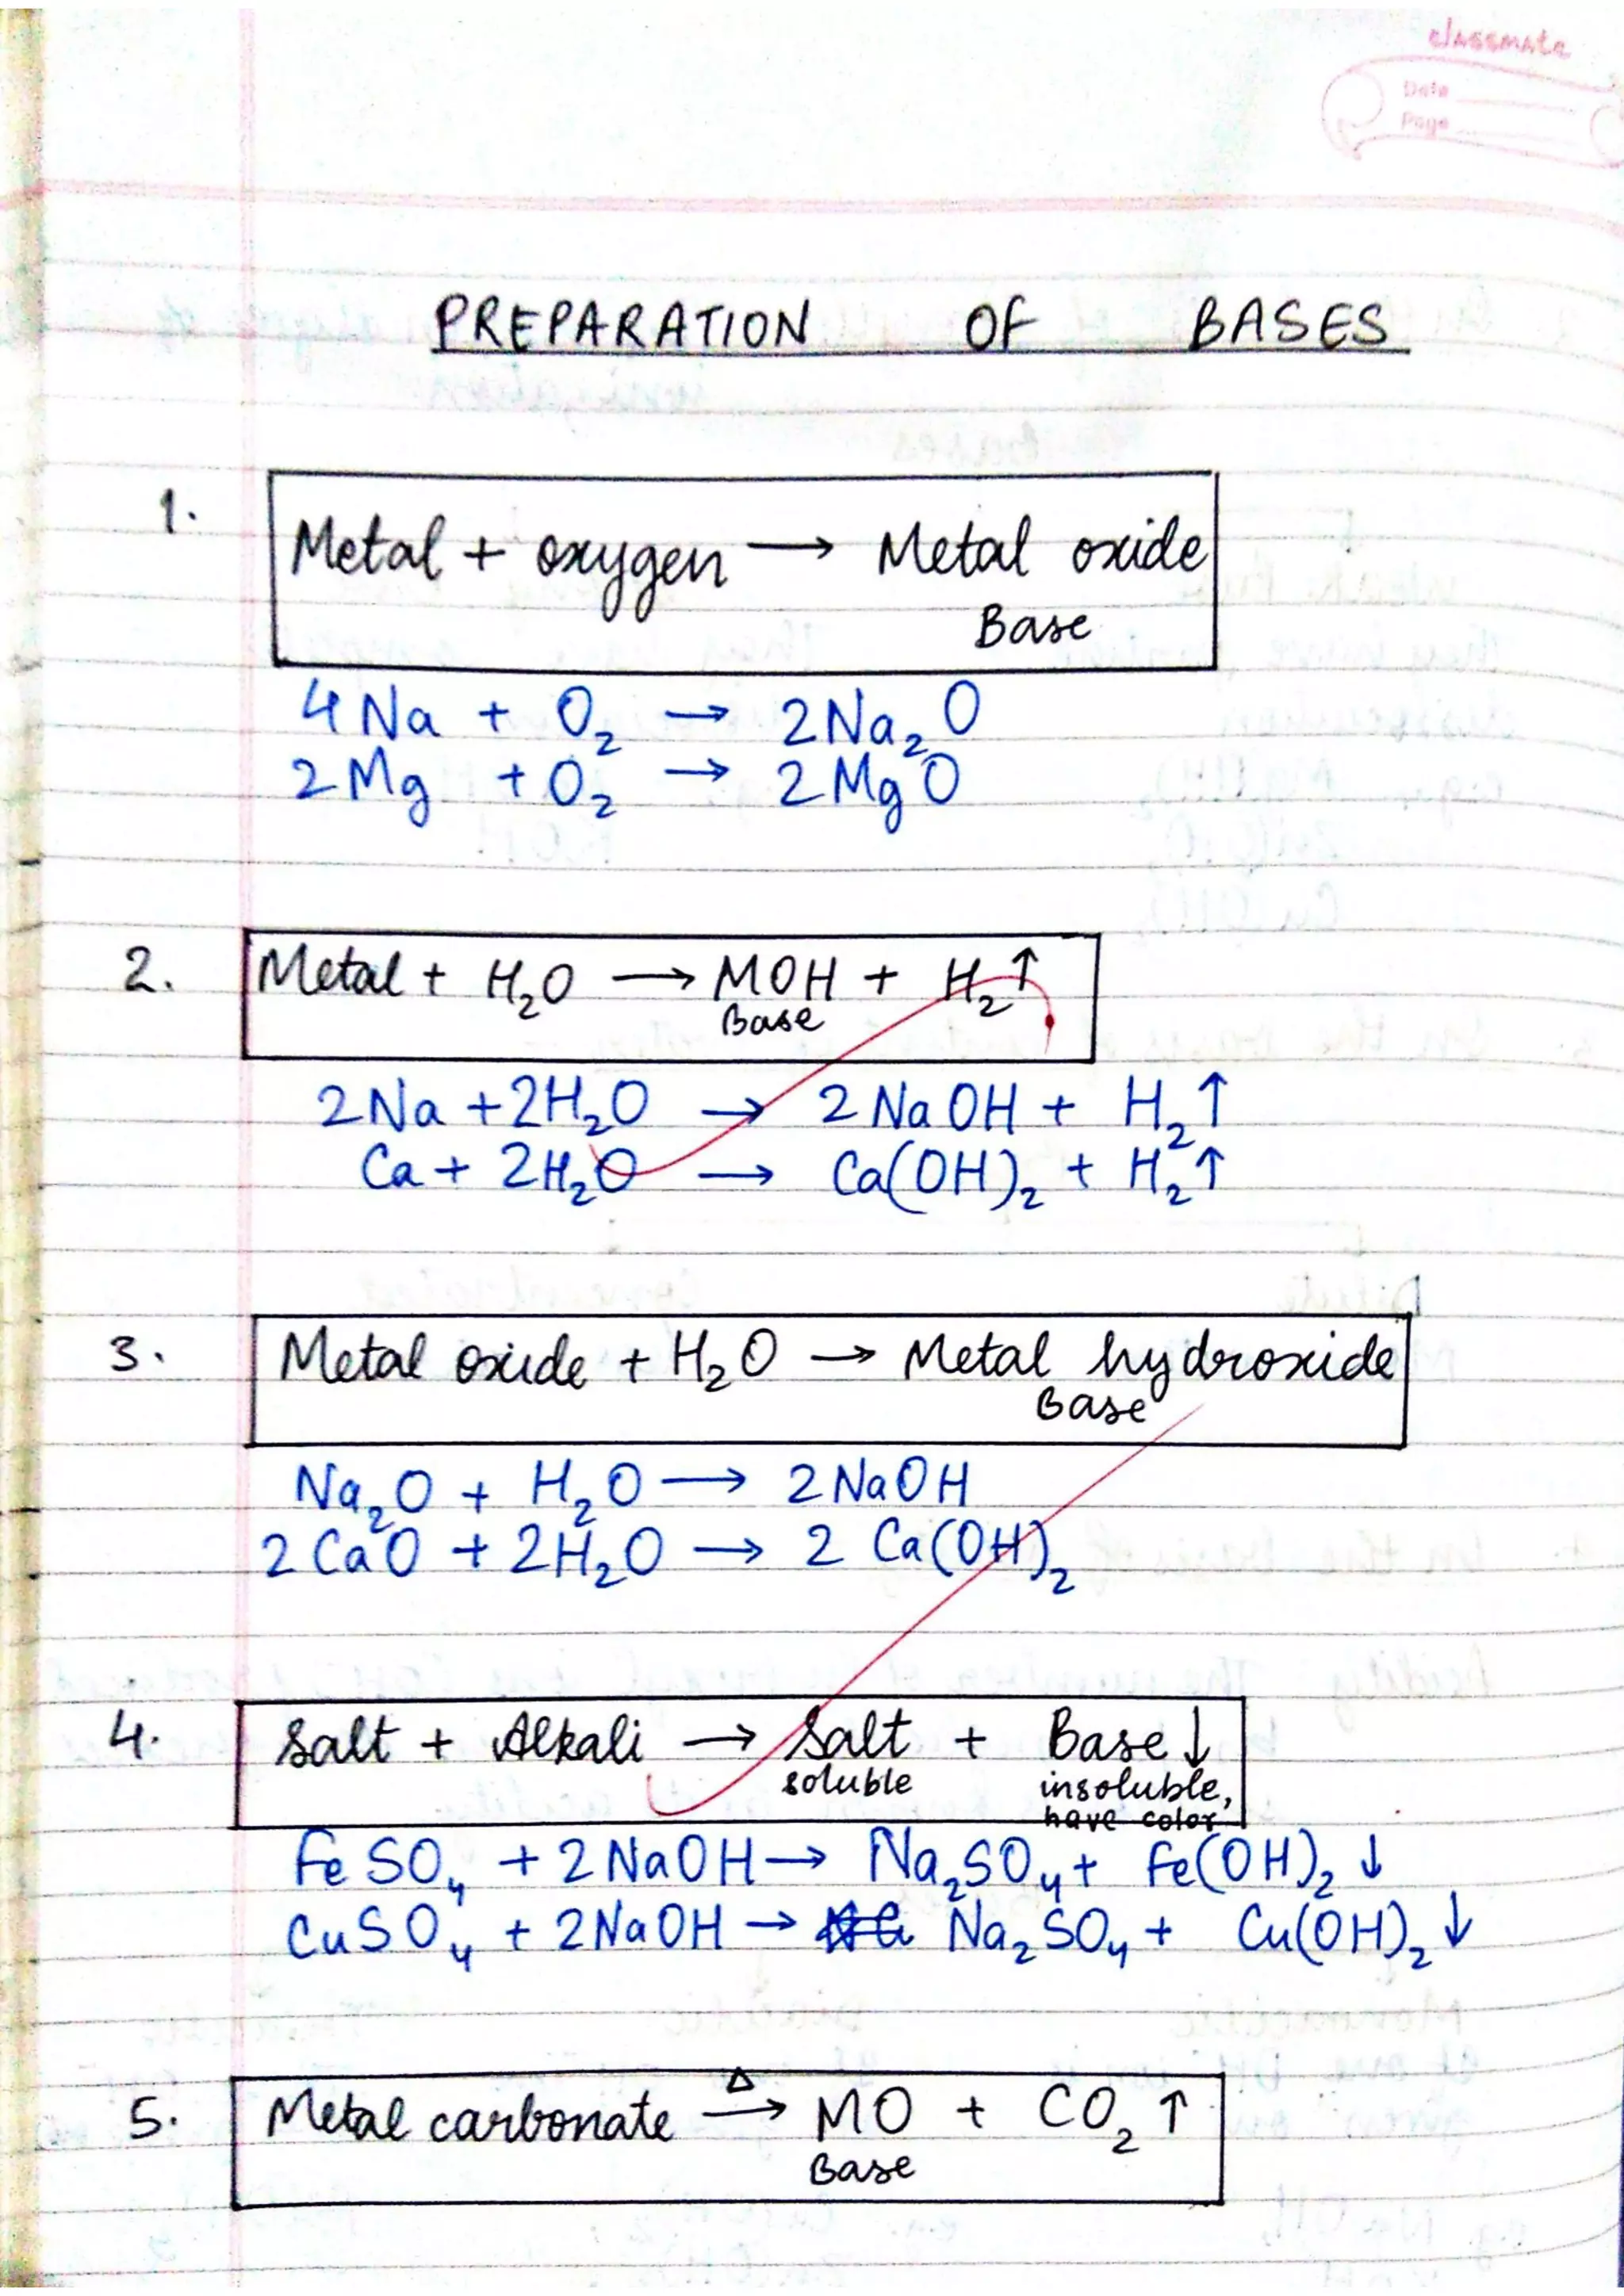 classmate
Date
Page
PREPARATION OF BASES
1. Metal + oxygen → Metal oxide
Base
4Na + O₂ → 2Na₂O
2Mg + O₂ → 2MgO
2. Metal + H₂O → MOH + H₂↑
Base
2Na + 2H₂O → 2NaOH + H₂↑
Ca + 2H₂O → Ca(OH)₂ + H₂↑
3. Metal oxide + H₂O → Metal hydroxide
Base
Na₂O + H₂O → 2NaOH
2CaO + 2H₂O → 2Ca(OH)₂
4. Salt + Alkali → Salt + Base↓
soluble insoluble,
have color
FeSO₄ + 2NaOH → Na₂SO₄ + Fe(OH)₂↓
CuSO₄ + 2NaOH → Na₂SO₄ + Cu(OH)₂↓
5. Metal carbonate →
Δ MO + CO₂↑
Base